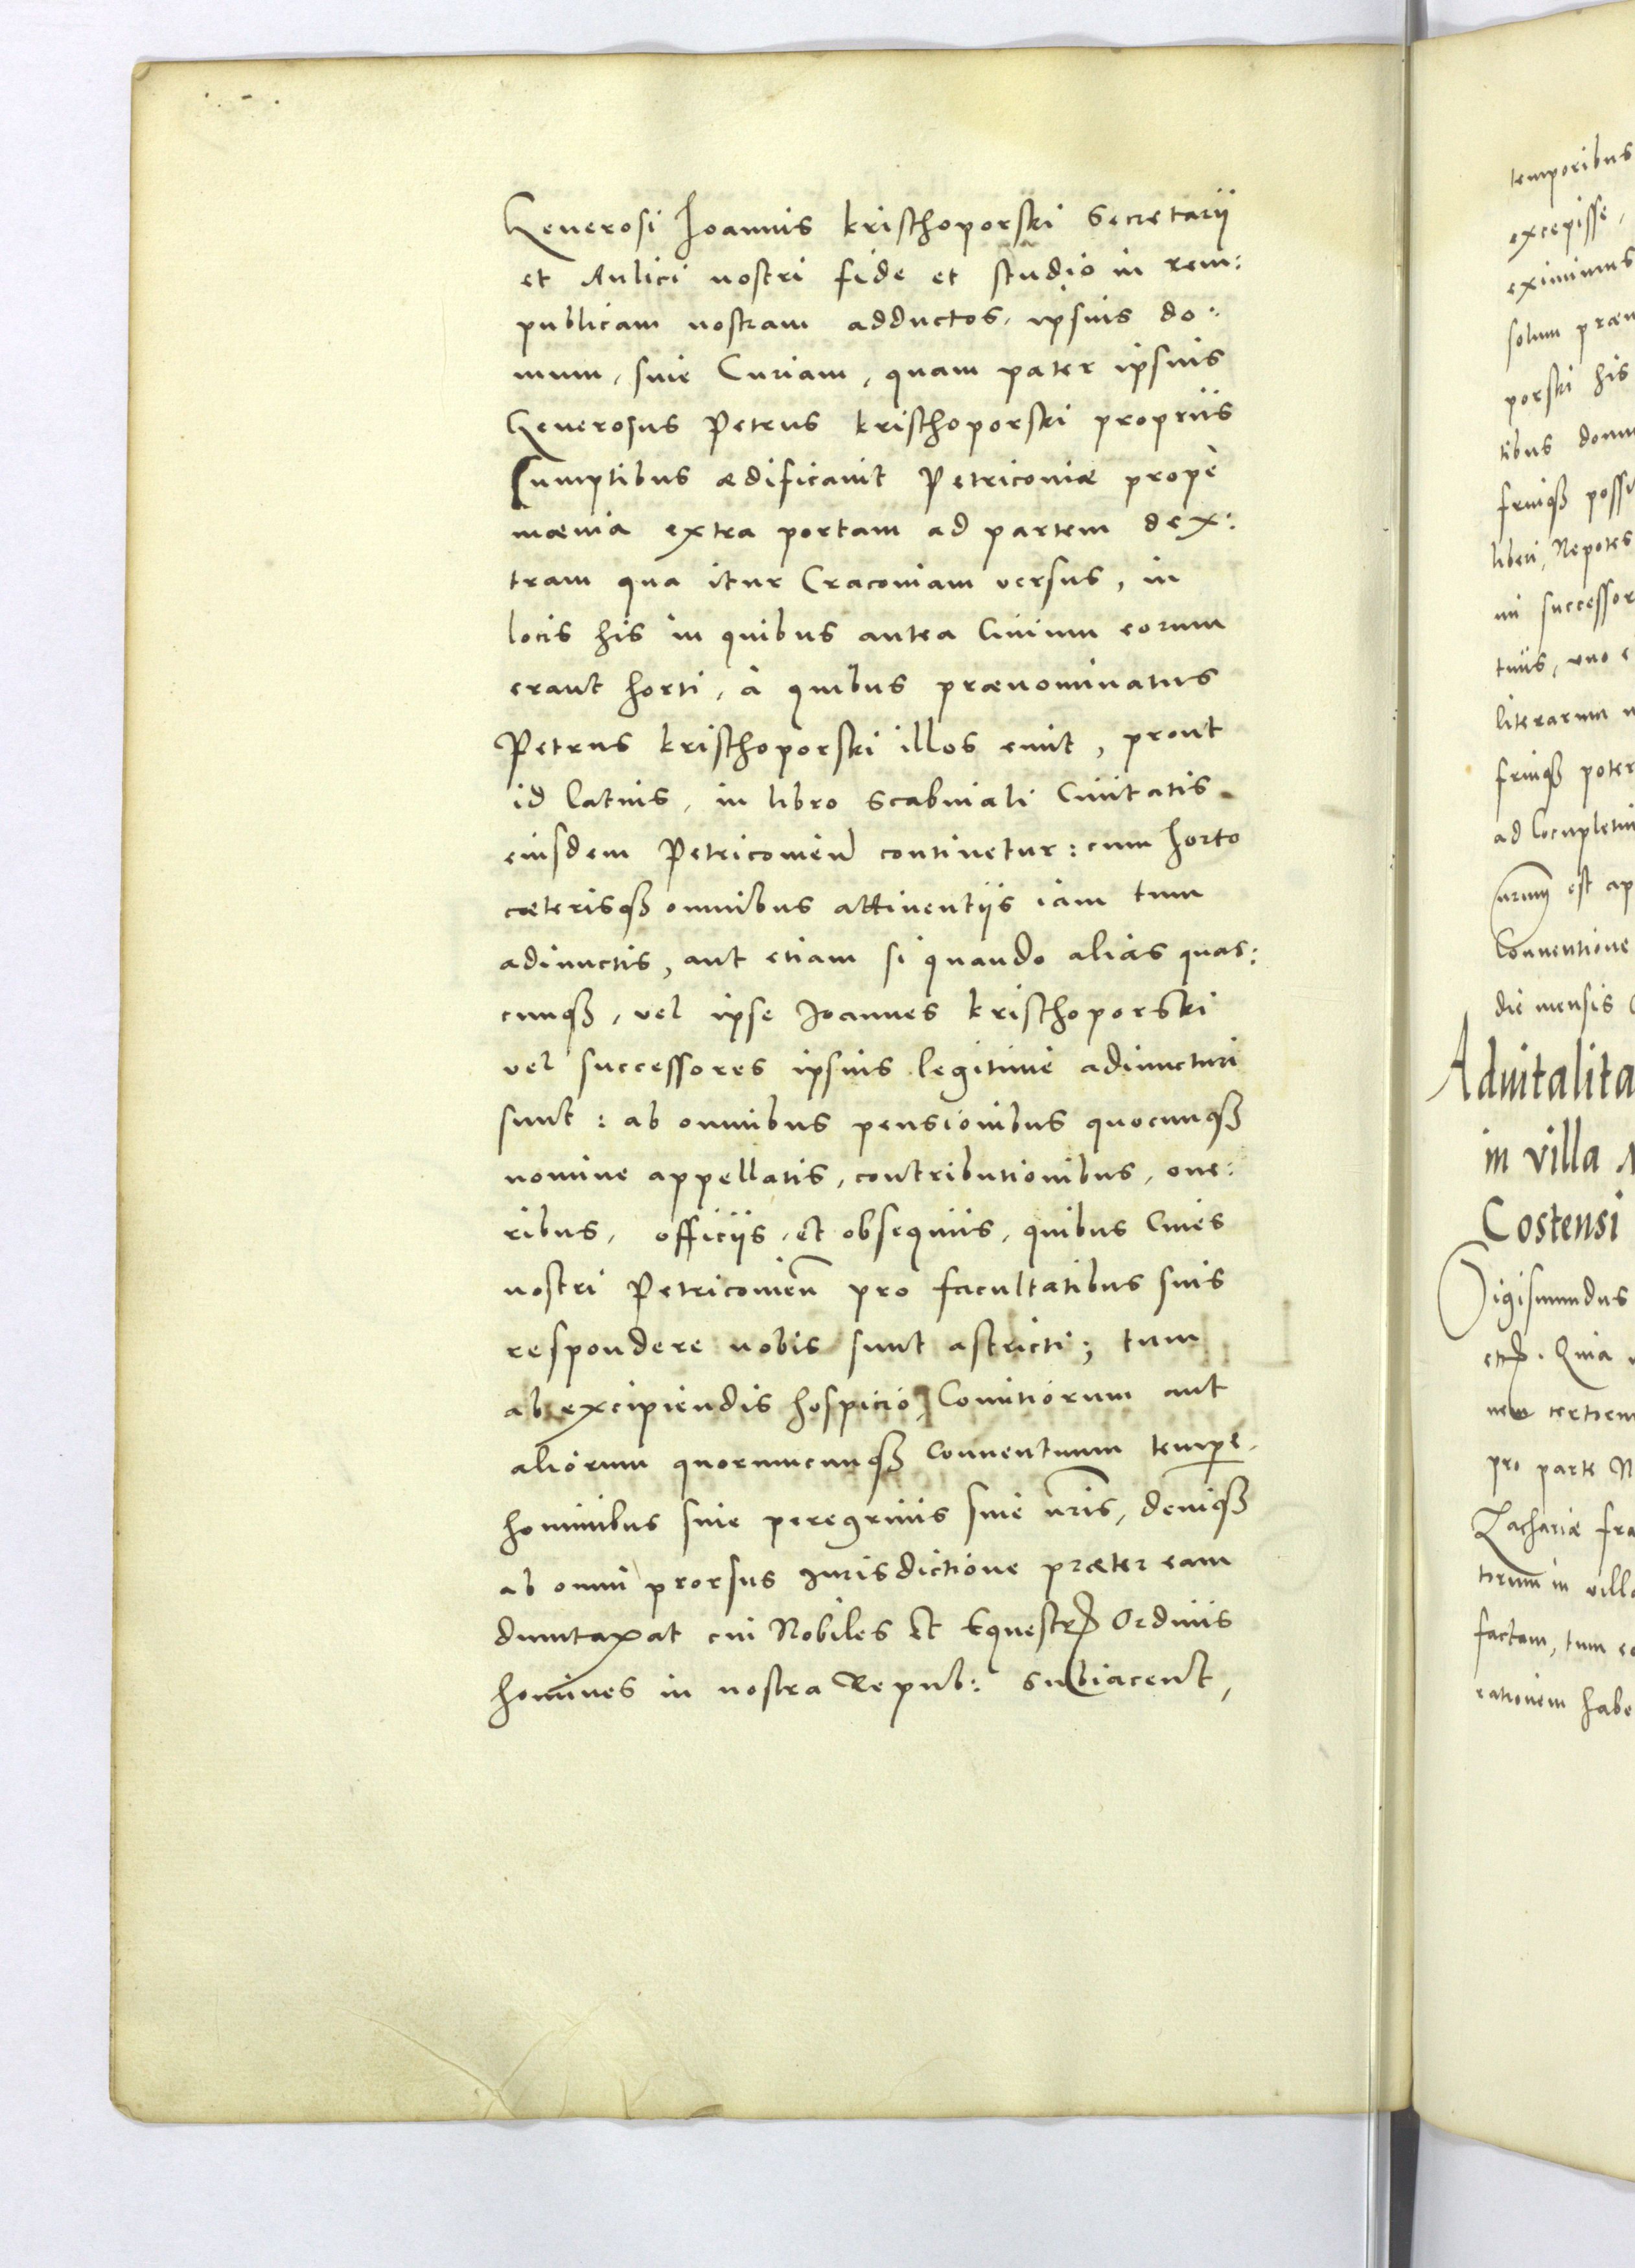 Generosi Ioannis Krischoporski Secretarii
et Aulici nostri fide et studio in rem:
publicam nostram adductos, ipsius do:
mum, siue Curiam, quam pater ipsius
Generosus Petrus Krischoporski propriis
Sumptibus ædificauit Petricouiæ propè
mœnia extra portam ad partem dex:
tram qua itur Cracouiam versus, in
locis his in quibus antea Ciuium eorum
erant horti, à quibus prænominatus
Petrus Krischoporski illos emit, prout
id latius, in libro Scabinali Ciuitatis
eiusdem Petricouien̄ continetur: cum horto
cæterisqȝ omnibus attinentiis iam tum
adiunctis, aut etiam si quando alias quas:
cunqȝ, vel ipse Joannes Krischoporski
vel successores ipsius legitimè adiuncturi
sunt: ab omnibus pensionibus quocunqȝ
nomine appellatis, contributionibus, one:
ribus, officiis, et obsequiis, quibus Ciues
nostri Petricouien̄ pro facultatibus suis
respondere nobis sunt astricti; tum
ab excipiendis hospicio, Comitiorum aut
aliorum quorumcunqȝ Conuentuum tempe,
hominibus siue peregrinis siue nr̄is, deniqȝ
ab omni prorsus Iurisdictione præter eam
duntaxat cui Nobiles et Equestris Ordinis
homines in nostra Repub: subiacent,
temporibus
excepisse,
eximimus
solum præn
porski his
tibus domu
fruiqȝ possi
liberi, Nepotes
mi successor
tuis, uno e
literarum
fruiqȝ poter
ad locupletiu
est ap
Conuentione
die mensis
Aduitalita
in villa
Costensi
Sigismundus
etc. Quia
pro parte N
Zachariæ fra
in villa
factam, tum
rationem habe